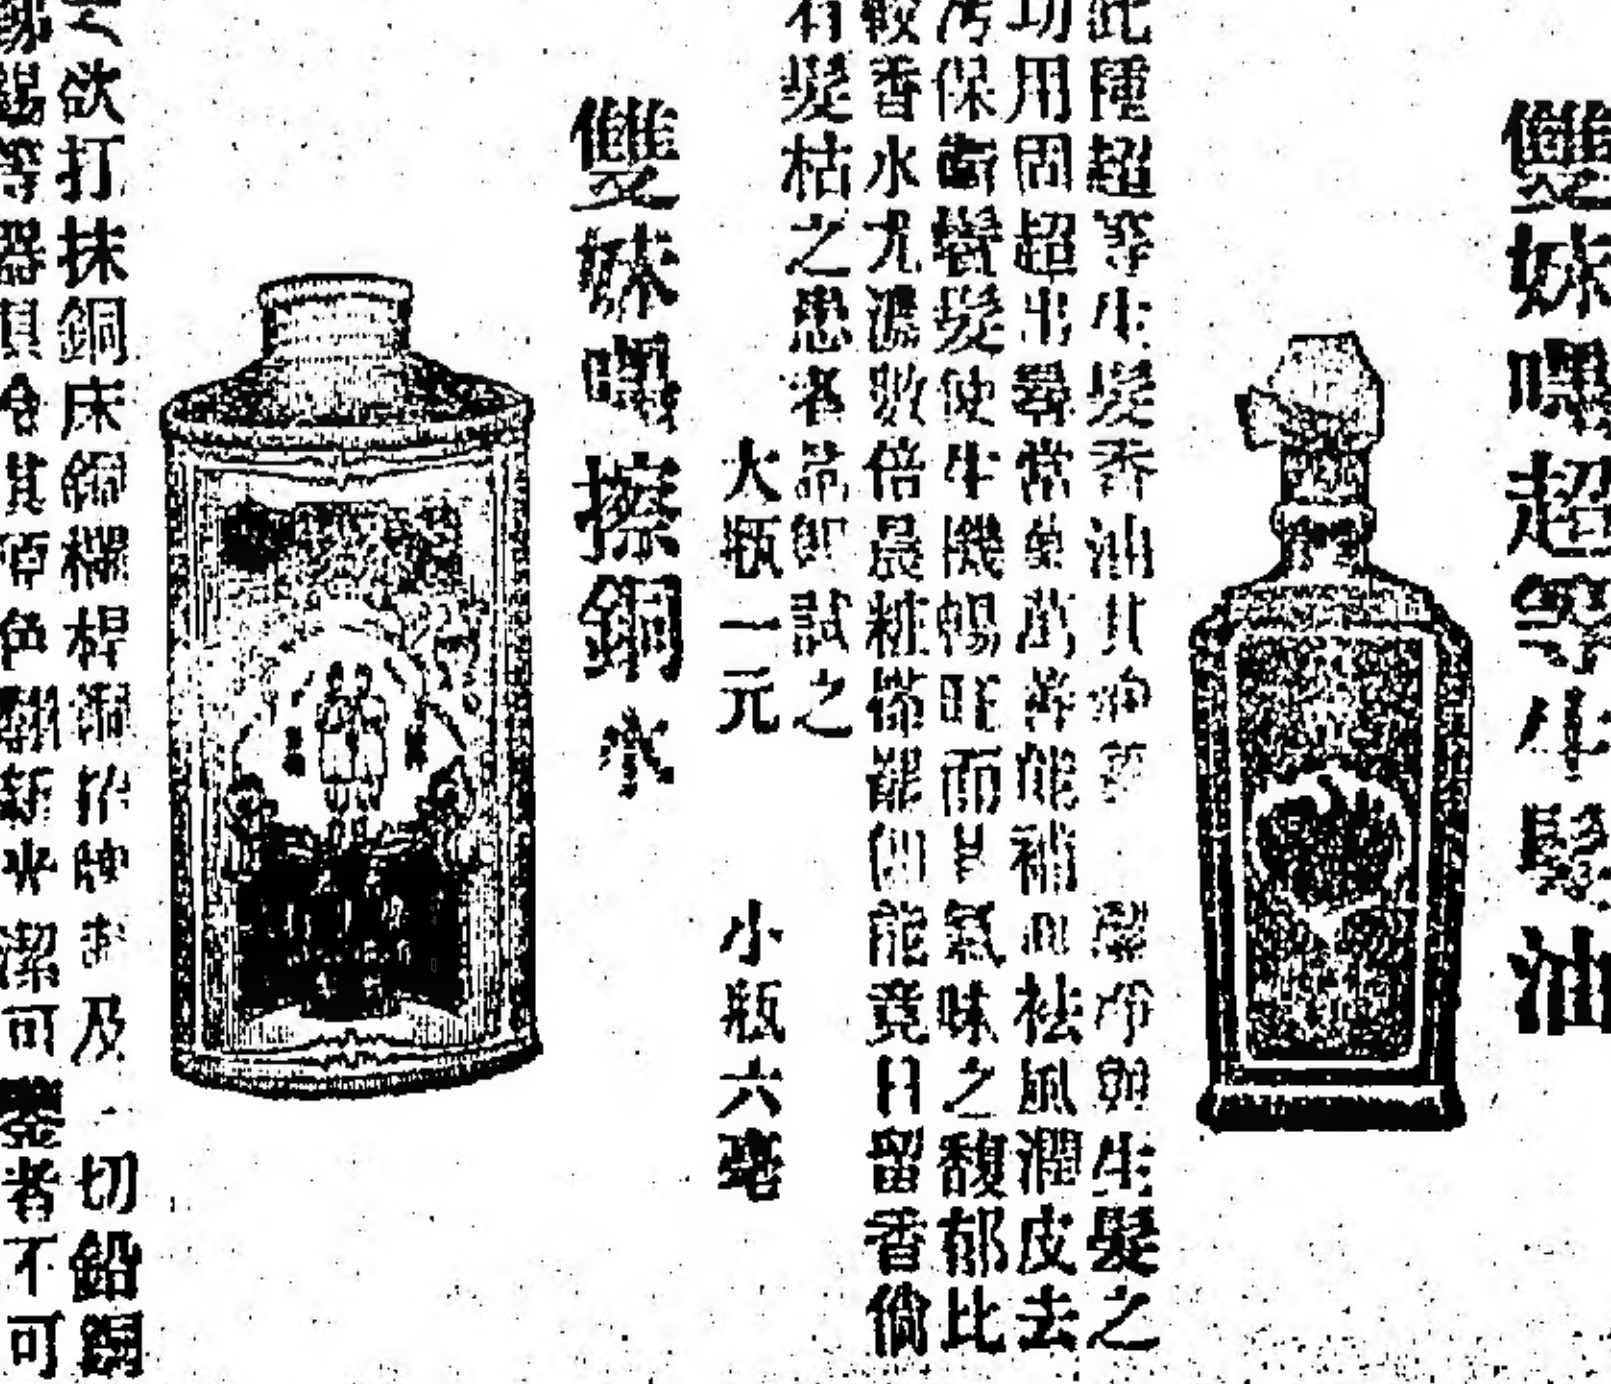 雙妹嚜超等生髮油
此種超等生髮香油其 潔淨與生髮之
功用固超出尋常 萬善能補血祛風潤皮去
污保衛鬢髮使生機暢旺而 氣味之馥郁比
較香水尤濃數倍晨粧搽 能竟日留香倘
有髮枯之患者 卽試之
大瓶一元 小瓶六毫
雙妹嚜擦銅水
之欲打抹銅床銅欄桿銅 牌 及一切鉛銅
錫等器具令其 色翻新光潔可鑒者不可